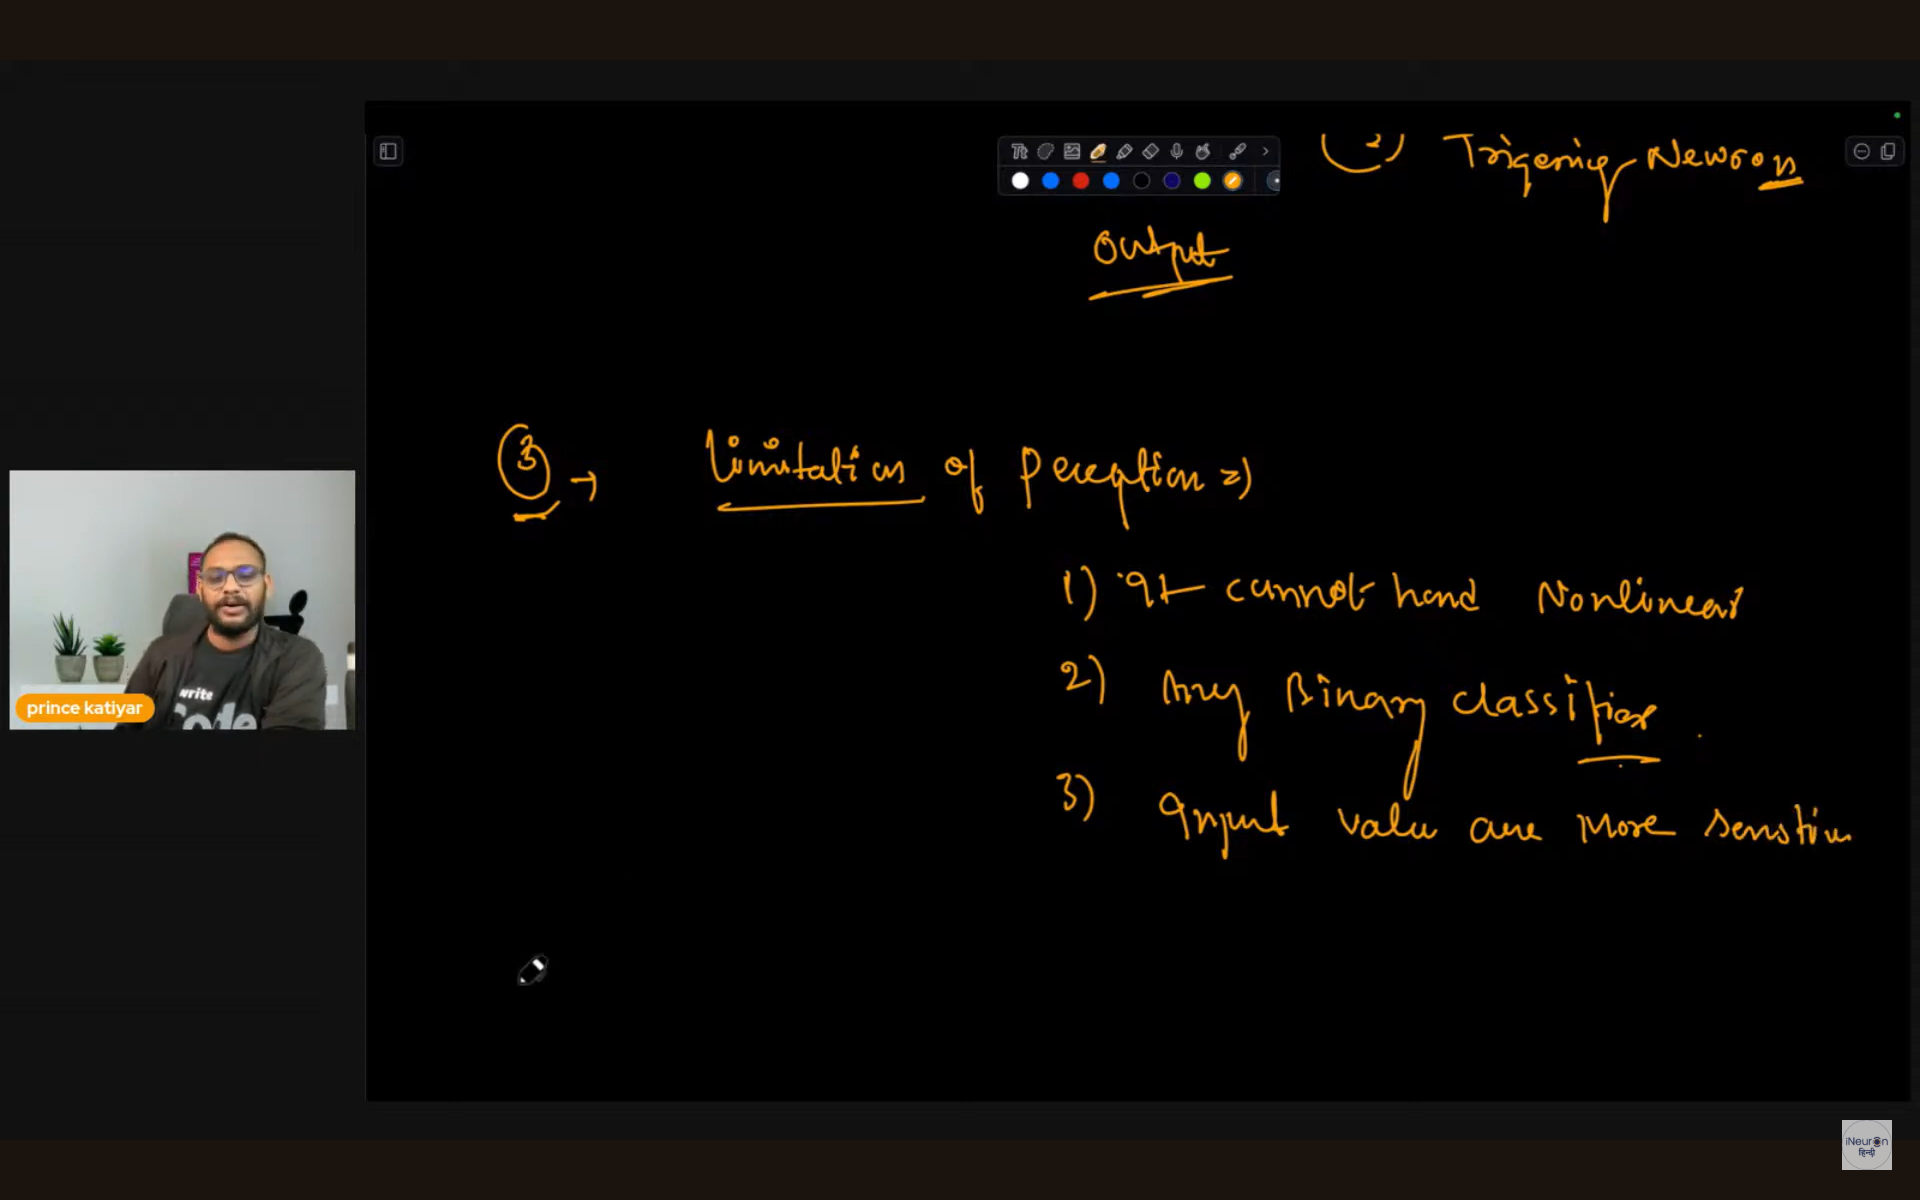 2) Trigering Newron
Output
3 → Limitation of perception ⇒
1) It cannot hand Nonlinear
2) Any Binary classifier
3) Input value are more senstive
write
Code
prince katiyar
iNeuron
हिन्दी